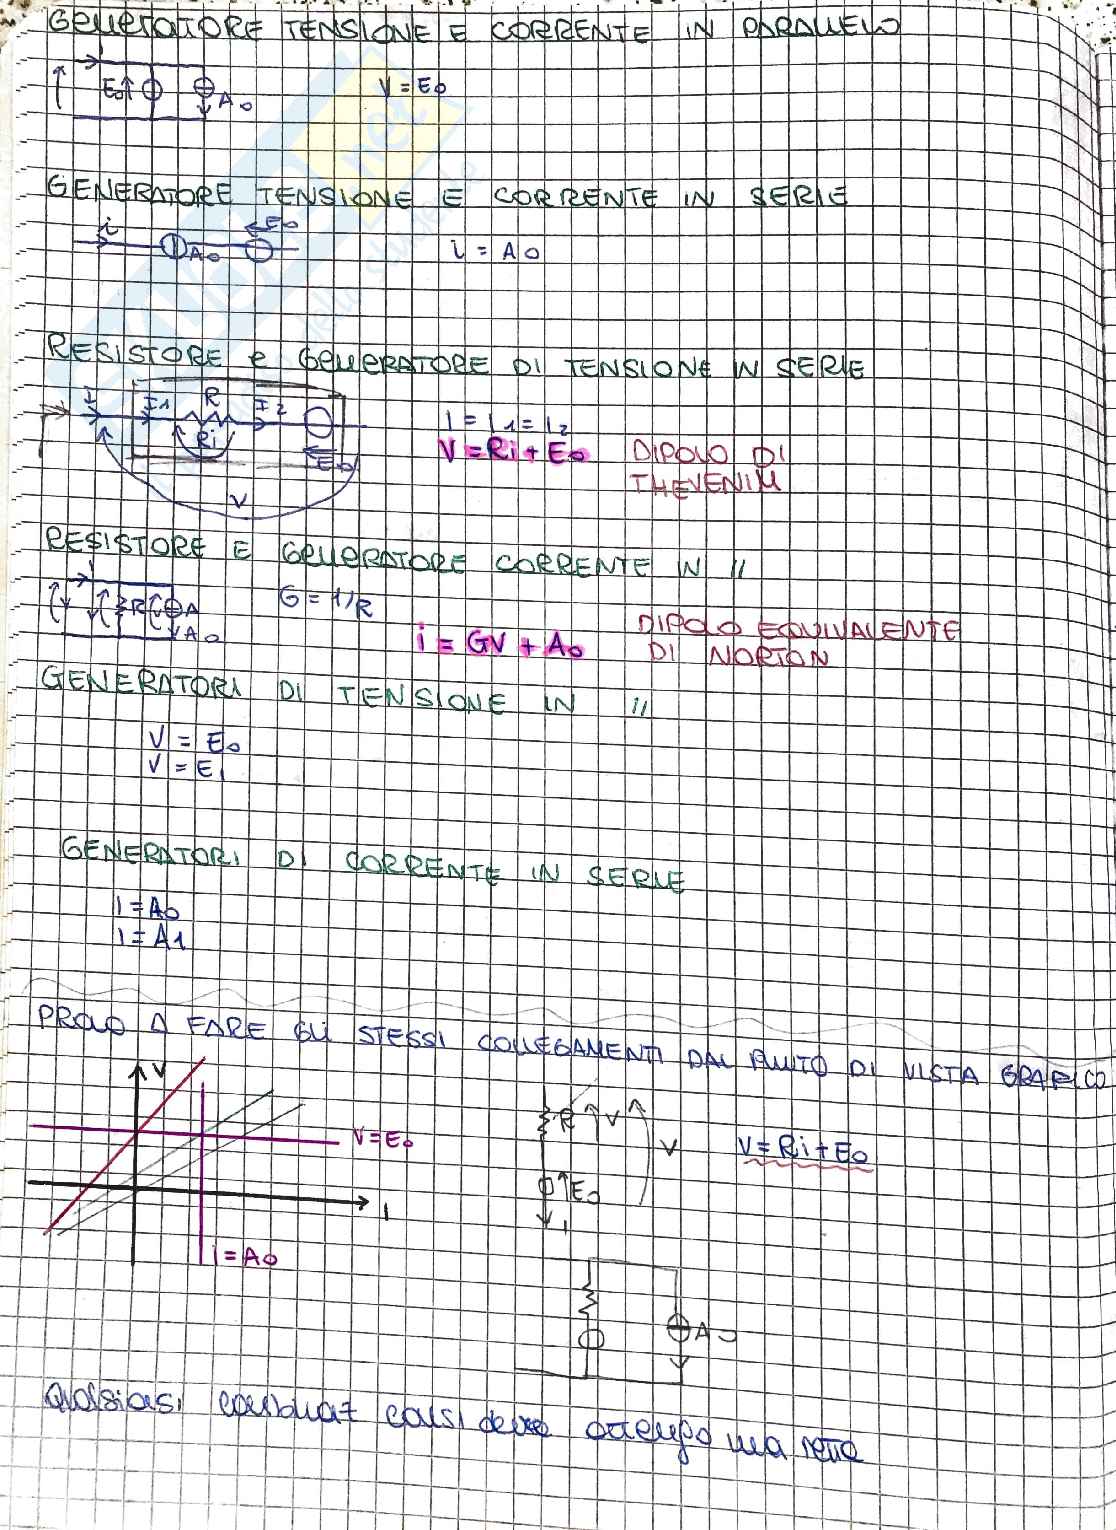 GENERATORE TENSIONE E CORRENTE IN PARALLELO
E0 A0 V = E0
GENERATORE TENSIONE E CORRENTE IN SERIE
i A0 E0 i = A0
RESISTORE e GENERATORE DI TENSIONE IN SERIE
I I1 R I2 I = I1 = I2
Ri E0 V = Ri + E0 DIPOLO DI
THEVENIN
V
RESISTORE E GENERATORE CORRENTE IN //
R A G = 1/R
A0 i = GV + A0 DIPOLO EQUIVALENTE
DI NORTON
GENERATORI DI TENSIONE IN //
V = E0
V = E1
GENERATORI DI CORRENTE IN SERIE
I = A0
I = A1
PROVO A FARE GLI STESSI COLLEGAMENTI DAL PUNTO DI VISTA GRAFICO
V R V
V = E0 V V = Ri + E0
E0
I I
i = A0
A0
Qualsiasi combinaz consideri ottengo una retta